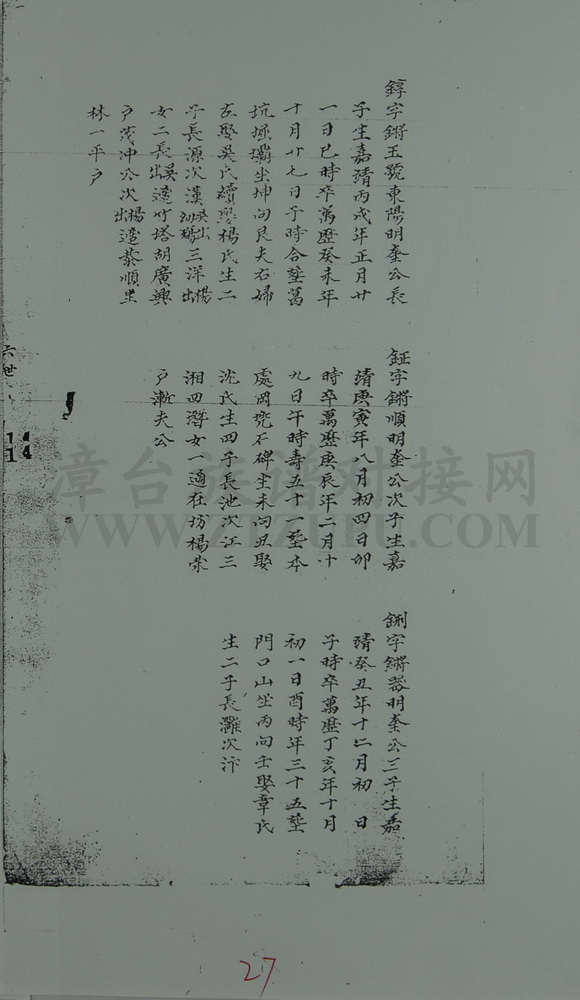 錞字鏘玉號東陽明奎公長
子生嘉靖丙戌年正月廿
一日巳時卒萬歷癸未年
十月廿七日子時合塟葛
坑壩坐坤向艮夫右婦
左娶吳氏續娶楊氏生二
子長源次漢吳出三洋楊出
女二長吳出適竹塔胡廣興
戶茂冲公次楊出適蔡順里
林一平戶
鉦字鏘順明奎公次子生嘉
靖庚寅年八月初四日卯
時卒萬歷庚辰年二月十
九日午時壽五十一塟本
處岡兜石碑坐未向丑娶
沈氏生四子長池次江三
湘四潛女一適在坊楊榮
戶漸夫公
鉶字鏘蓉明奎公三子生嘉
靖癸丑年十二月初日
子時卒萬歷丁亥年十月
初一日酉時年三十五塟
門口山坐丙向壬娶韋氏
生二子長灘次汴
六世
漳台族谱对接网
WWW.ZTZUPU.COM
27